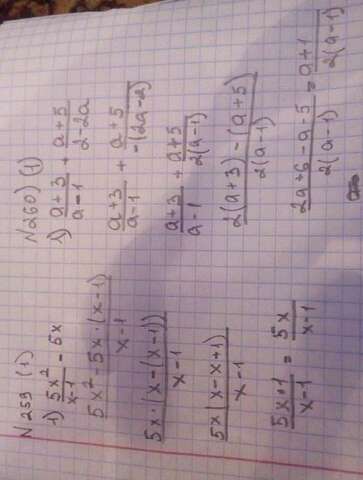 N 259 (1)
1) \frac{5x^2}{x-1} - 5x
\frac{5x^2 - 5x \cdot (x-1)}{x-1}
\frac{5x \cdot (x-(x-1))}{x-1}
\frac{5x(x-x+1)}{x-1}
\frac{5x \cdot 1}{x-1} = \frac{5x}{x-1}
N 260) (1)
1) \frac{a+3}{a-1} + \frac{a+5}{2-2a}
\frac{a+3}{a-1} + \frac{a+5}{-(2a-2)}
\frac{a+3}{a-1} + \frac{a+5}{2(a-1)}
\frac{2(a+3)-(a+5)}{2(a-1)}
\frac{2a+6-a-5}{2(a-1)} = \frac{a+1}{2(a-1)}